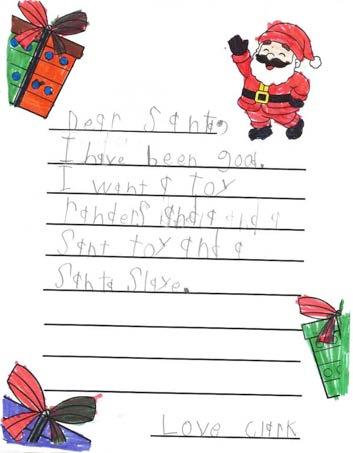 Dear Santa,
I have been good.
I want a toy
and a
Sant toy and a
Santa Slaye.
Love Clark